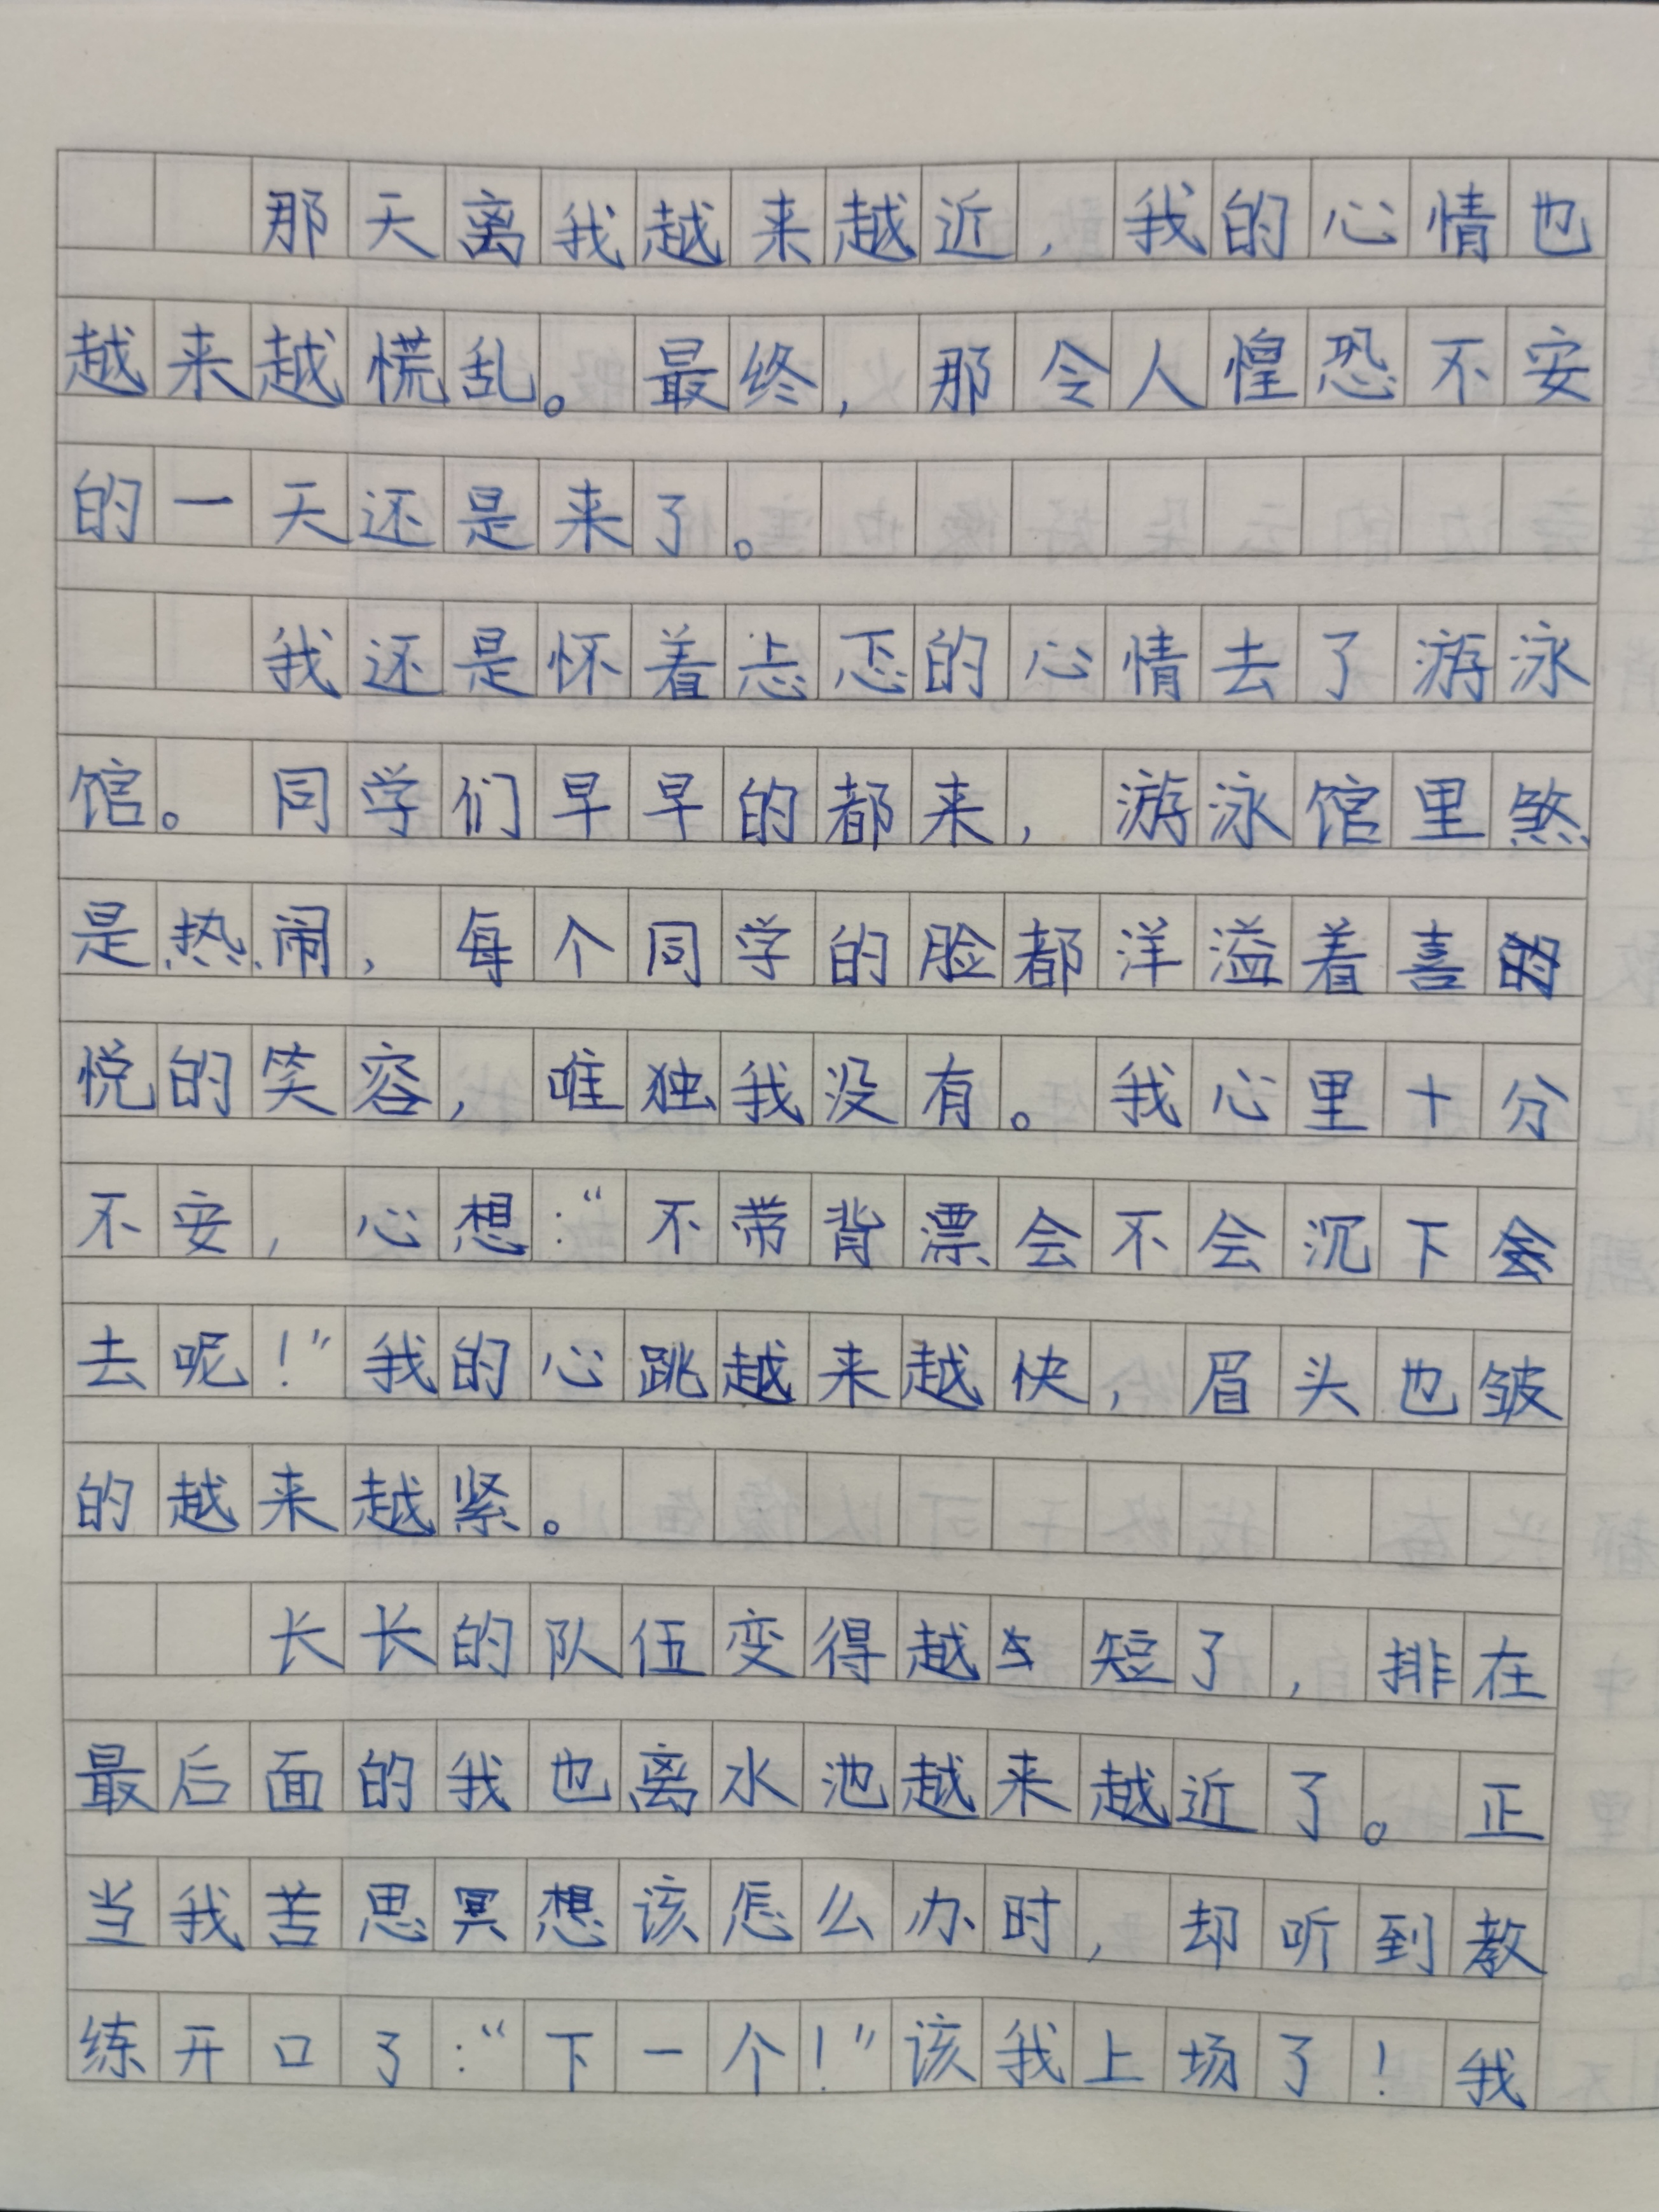 那天离我越来越近，我的心情也
越来越慌乱。最终，那令人惶恐不安
的一天还是来了。
我还是怀着忐忑的心情去了游泳
馆。同学们早早的都来，游泳馆里煞
是热闹，每个同学的脸都洋溢着喜
悦的笑容，唯独我没有。我心里十分
不安，心想：“不带背漂会不会沉下
去呢！”我的心跳越来越快，眉头也皱
的越来越紧。
长长的队伍变得越短了，排在
最后面的我也离水池越来越近了。正
当我苦思冥想该怎么办时，却听到教
练开口了：“下一个！”该我上场了！我